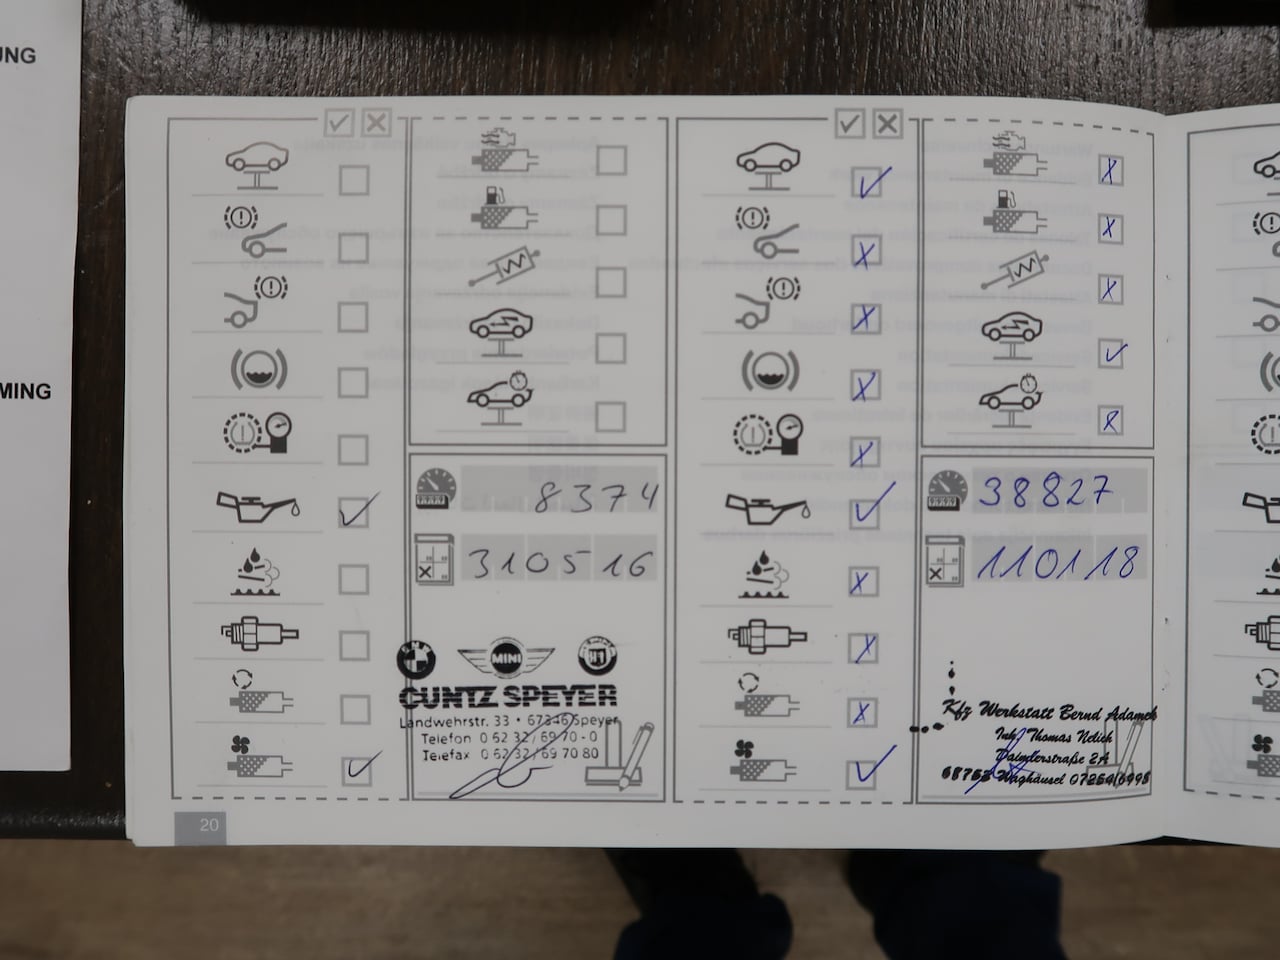 UNG
MING
8374
310516
BMW
MINI
CUNTZ SPEYER
Landwehrstr. 33 • 67346 Speyer
Telefon 0 62 32 / 69 70 - 0
Telefax 0 62 32 / 69 70 80
20
38827
110118
Kfz Werkstatt Bernd Adamek
Inh. Thomas Nelich
Daimlerstraße 2A
68753 Waghäusel 07254/6998